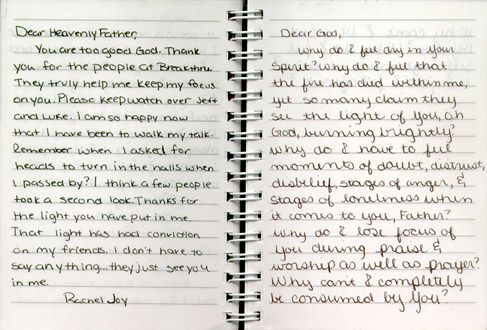 Dear Heavenly Father,
You are too good God. Thank
you for the people at Breakthru.
They truly help me keep my focus
on you. Please keep watch over Jeff
and Luke. I am so happy now
that I have been to walk my talk.
Remember when I asked for
heads to turn in the halls when
I passed by? I think a few people
took a second look. Thanks for
the light you have put in me.
That light has had conviction
on my friends. I don't have to
say anything...they just see you
in me.
Rachel Joy
Dear God,
Why do I feel dry in your
Spirit? Why do I feel that
the fire has died within me,
yet so many claim they
see the light of you, oh
God, burning brightly?
Why do I have to feel
moments of doubt, distrust,
disbelief, stages of anger, &
stages of loneliness when
it comes to you, Father?
Why do I lose focus of
you during praise &
worship as well as prayer?
Why can't I completely
be consumed by You?